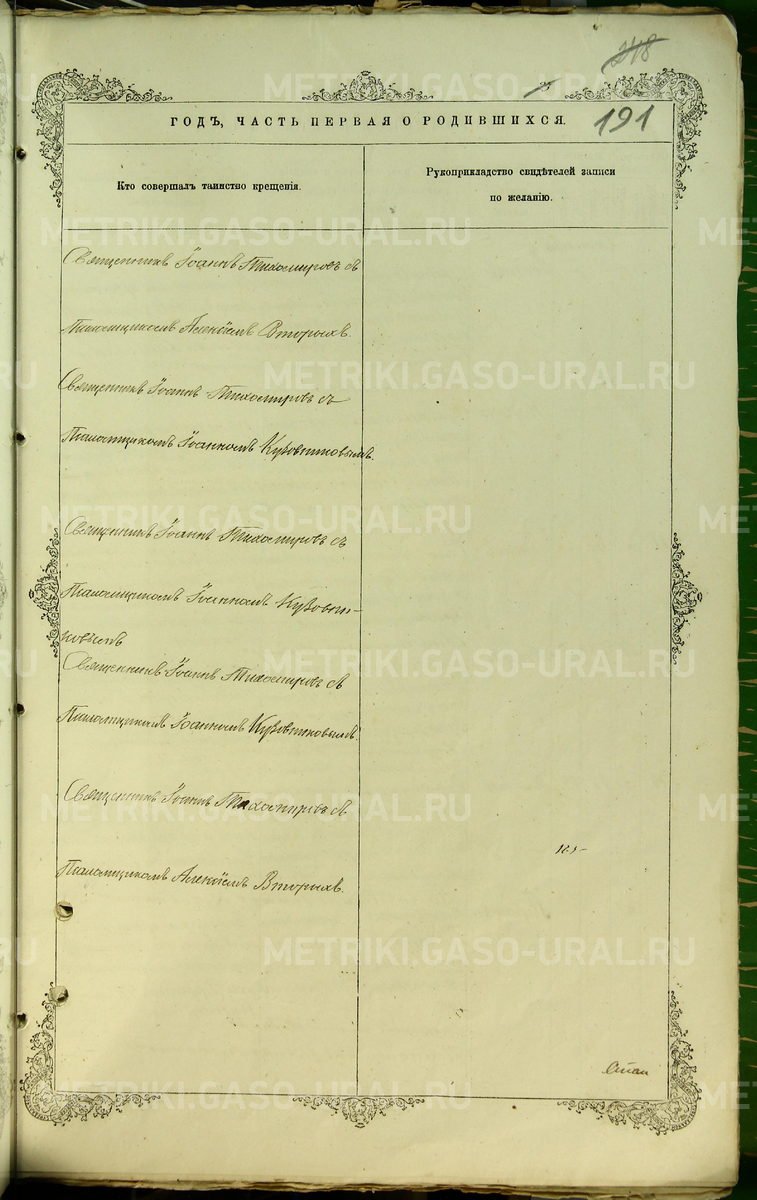 248
191
ГОДЪ, ЧАСТЬ ПЕРВАЯ О РОДИВШИХСЯ.
Кто совершалъ таинство крещенія.
Рукоприкладство свидѣтелей записи
по желанію.
Священникъ Іоаннъ Тихомировъ съ
Псаломщикомъ Алексіемъ Вторыхъ.
Священникъ Іоаннъ Тихомировъ съ
Псаломщикомъ Іоанномъ Кузовниковымъ.
Священникъ Іоаннъ Тихомировъ съ
Псаломщикомъ Іоанномъ Кузовни-
ковымъ
Священникъ Іоаннъ Тихомировъ съ
Псаломщикомъ Іоанномъ Кузовниковымъ
Священникъ Іоаннъ Тихомировъ съ
Псаломщикомъ Алексіемъ Вторыхъ.
METRIKI.GASO-URAL.RU